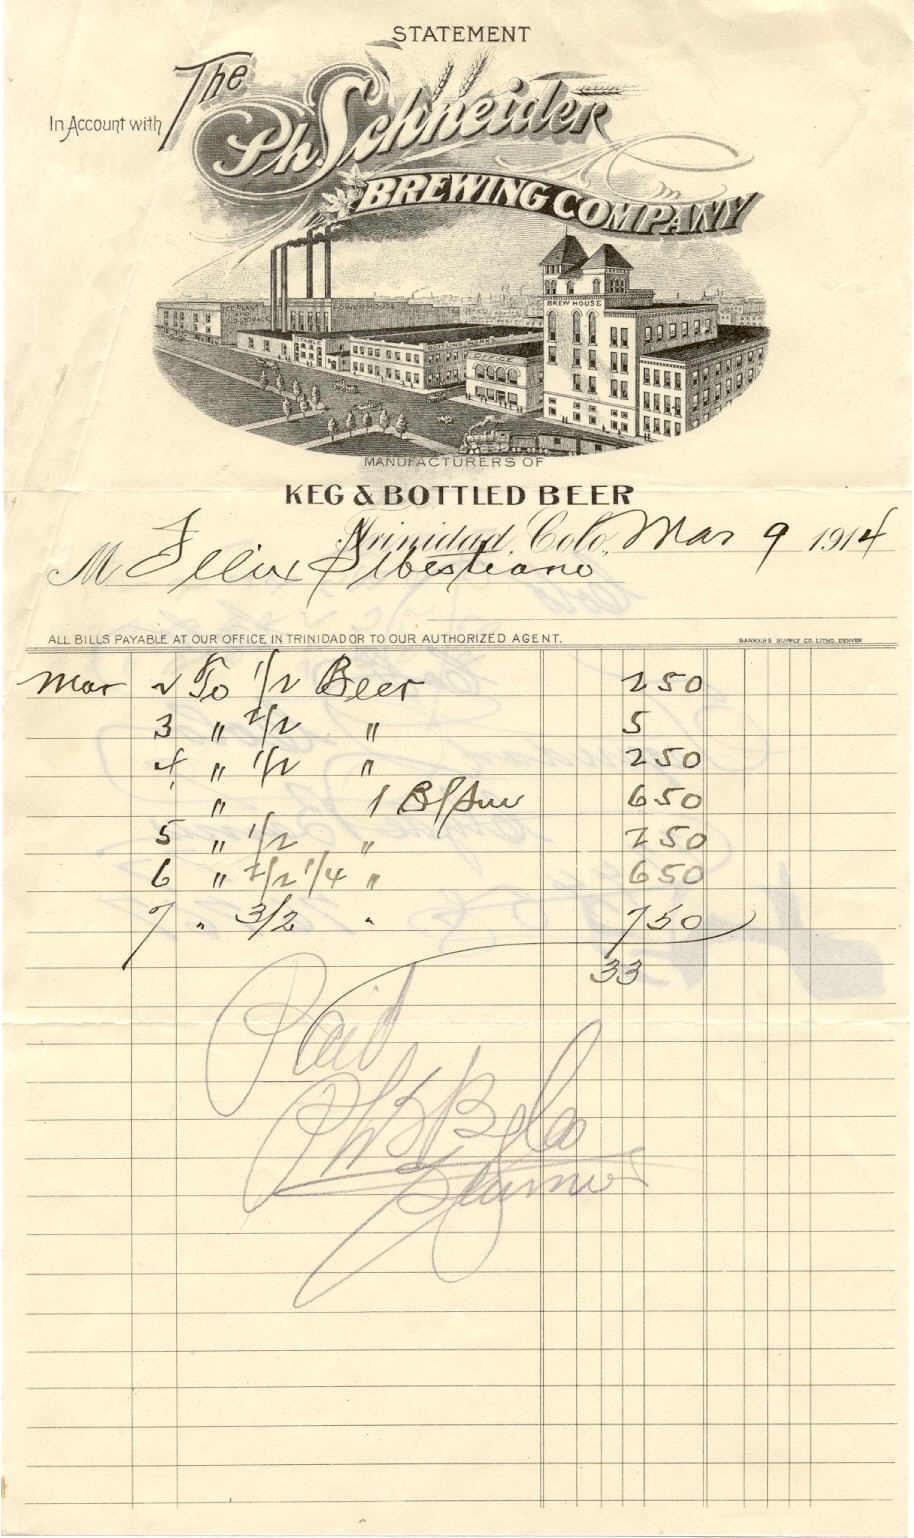 STATEMENT
In Account with
The
Ph. Schneider
BREWING COMPANY
POWER HOUSE
BREW HOUSE
STABLE
BOTTLING WORKS
OFFICE
MANUFACTURERS OF
KEG & BOTTLED BEER
Trinidad, Colo. Mar 9 1914
M Felix
ALL BILLS PAYABLE AT OUR OFFICE IN TRINIDAD OR TO OUR AUTHORIZED AGENT.
BANKERS SUPPLY CO. LITHO. DENVER
Mar 2 To 1/2 Beer 2 50
3 " 2/2 " 5
4 " 1/2 " 2 50
" 1 6 50
5 " 1/2 " 2 50
6 " 2/2 1/4 " 6 50
7 " 3/2 " 7 50
33
Paid
Ph S B Co